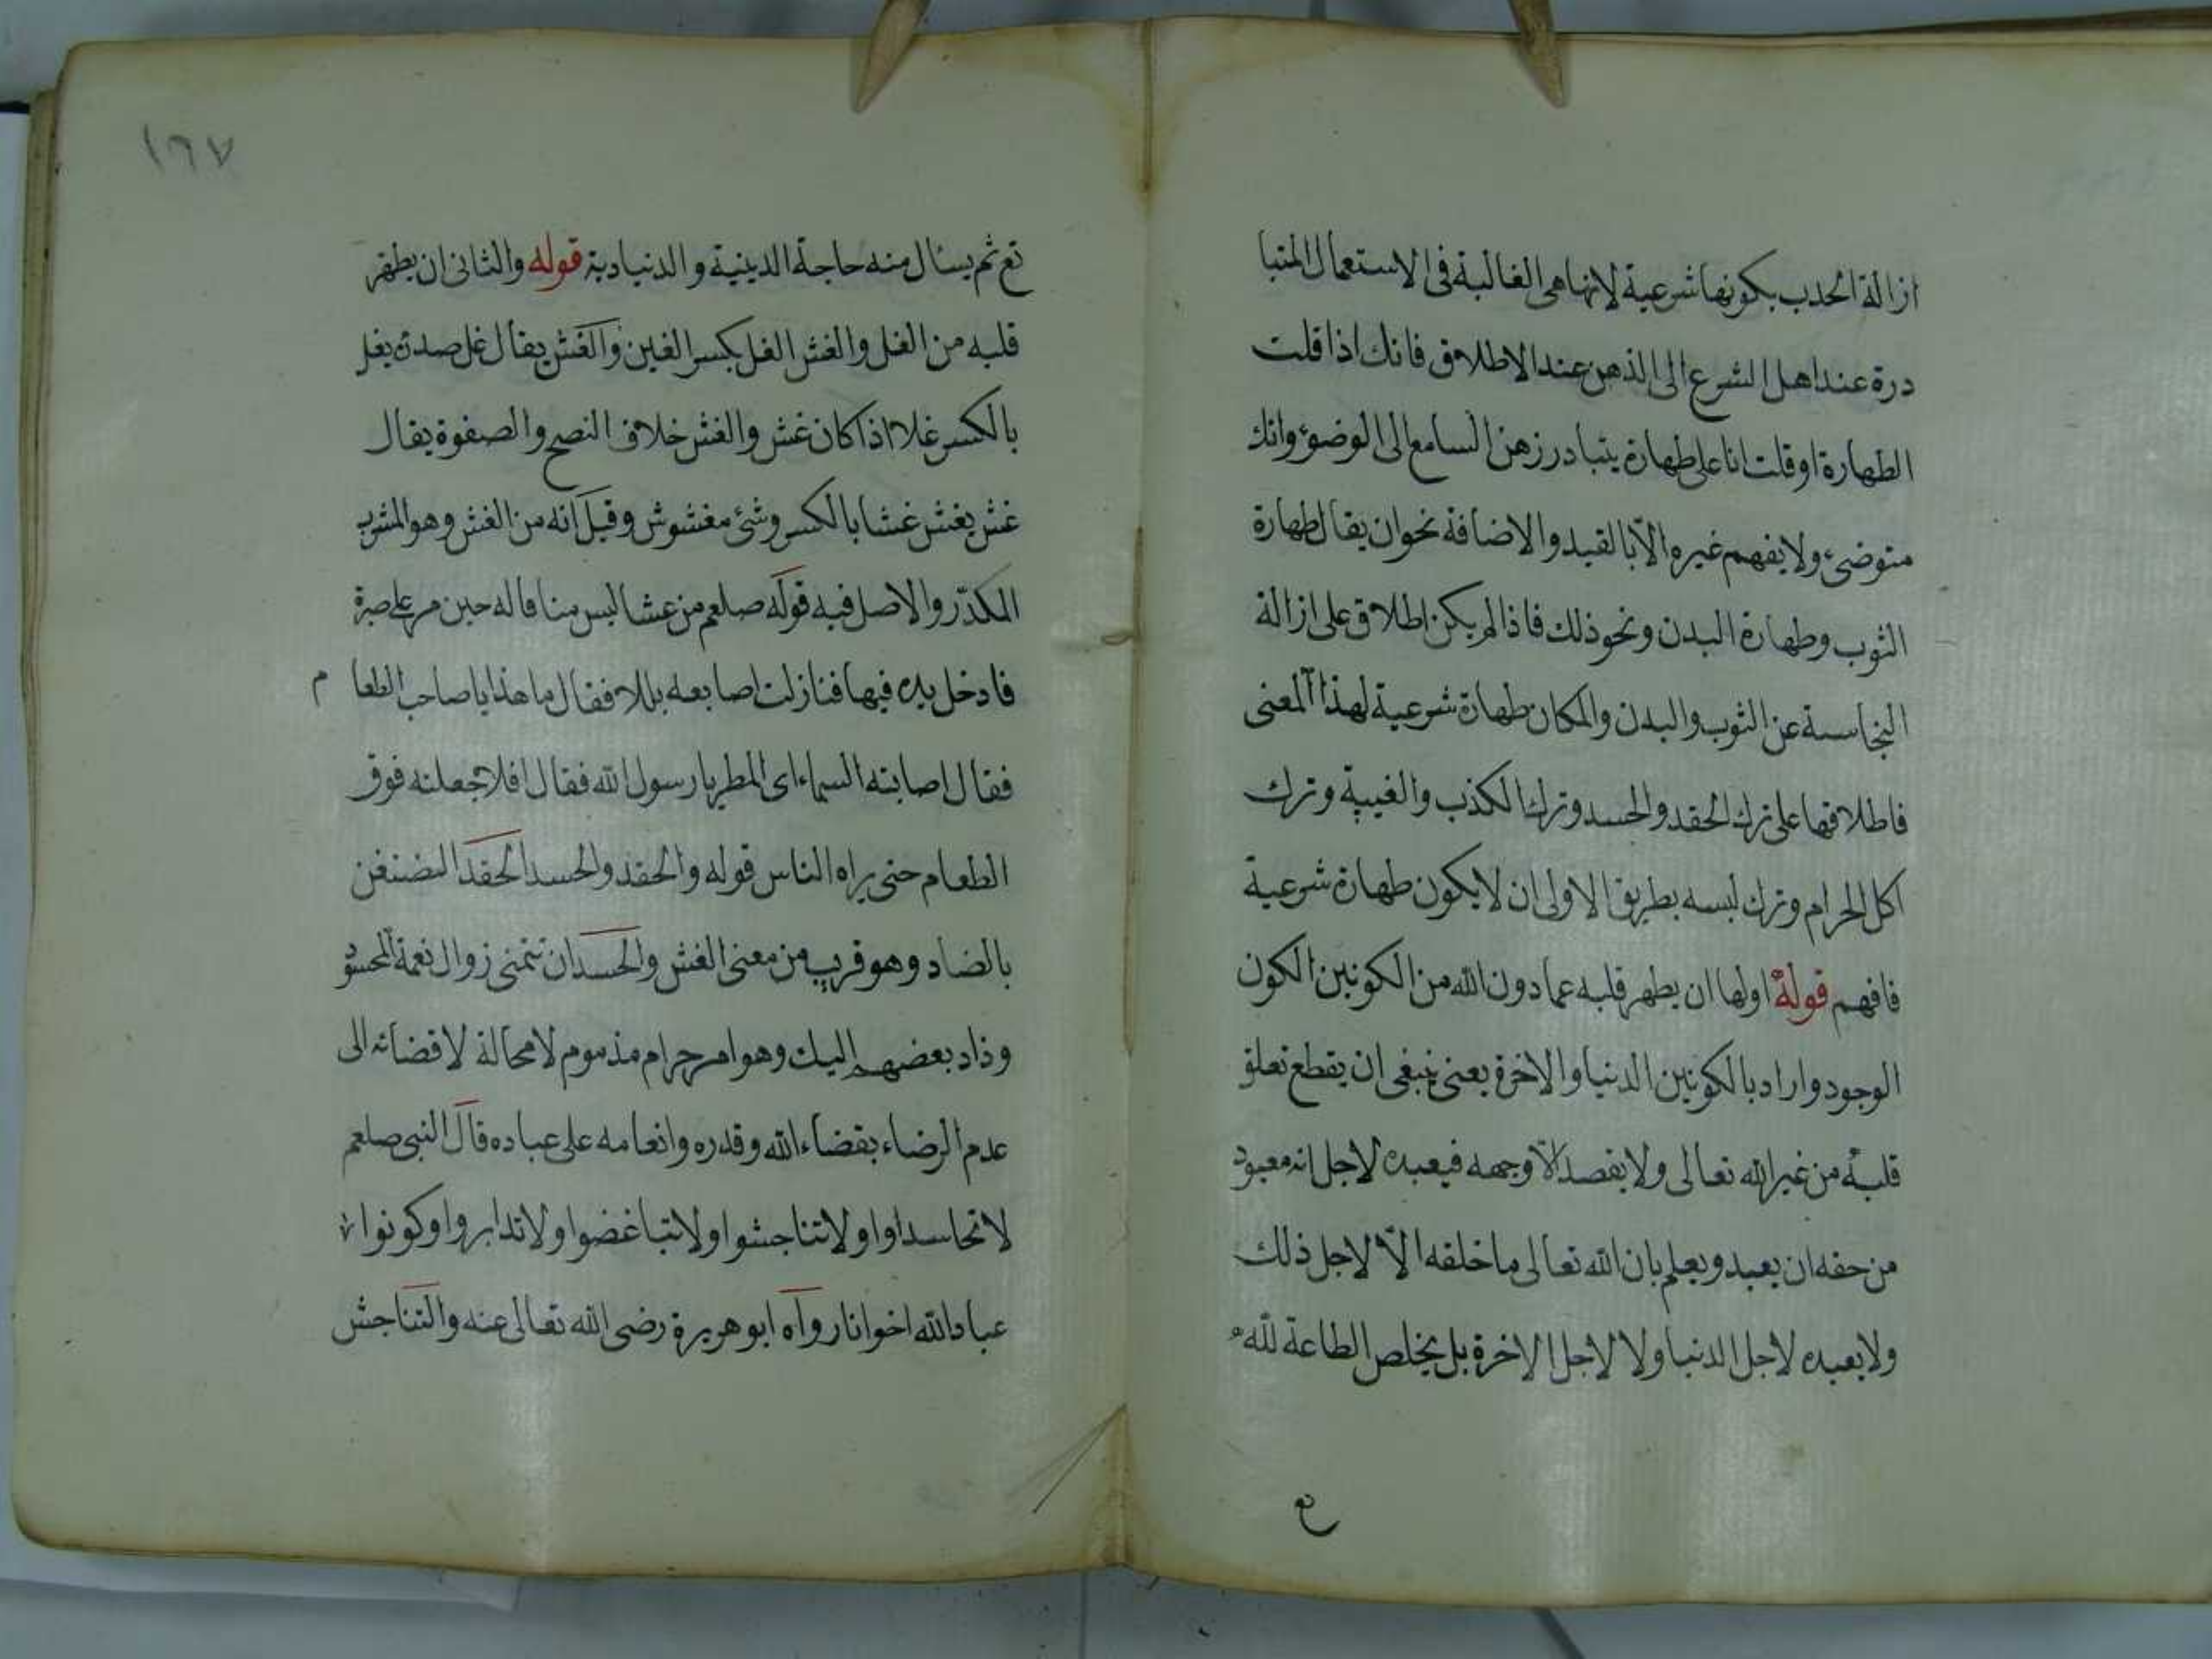 ازالة الحدب بكونها شرعية لانها هى الغالبة فى الاستعمال المتبا
درة عند اهل الشرع الى الذهن عند الاطلاق فانك اذا قلت
الطهارة او قلت انا على طهارة يتبادر زهن السامع الى الوضوء وانك
متوضئ ولا يفهم غيره الّا بالقيد والاضافة نحو ان يقال طهارة
الثوب وطهارة البدن ونحو ذلك فاذا لم يكن اطلاق على ازالة
النجاسة عن الثوب والبدن والمكان طهارة شرعية لهذا المعنى
فاطلاقها على ترك الحقد والحسد وترك الكذب والغيبة وترك
اكل الحرام وترك لبسه بطريق الاولى ان لا يكون طهارة شرعية
فافهم قوله اولها ان يطهر قلبه عما دون الله من الكونين الكون
الوجود واراد بالكونين الدنيا والاخرة يعنى ينبغى ان يقطع تعلق
قلبه من غير الله تعالى ولا يقصد الّا وجهه فيعبده لاجل انه معبود
من حقه ان يعبد ويعلم بان الله تعالى ما خلقه الّا لاجل ذلك
ولا يعبده لاجل الدنيا ولا لاجل الاخرة بل يخلص الطاعة لله
تع
١٦٧
تع ثم يسئال منه حاجة الدينية والدنياوية قوله والثانى ان يطهر
قلبه من الغل والغش الغل بكسر الغين والغش يقال غل صدره يغل
بالكسر غلا اذا كان غش والغش خلاف النصح والصفوة يقال
غش يغش غشا بالكسر وشئ مغشوش وقيل انه من الغش وهو المشرب
المكدّر والاصل فيه قوله صلعم من غشا ليس منا قاله حين مر على صبرة
فادخل يده فيها فنازلت اصابعه بللا فقال ما هذا يا صاحب الطعا م
فقال اصابته السماء اى المطر يا رسول الله فقال افلا جعلته فوق
الطعام حتى يراه الناس قوله والحقد والحسد الحقد التضنغن
بالضاد وهو قريب من معنى الغش والحسد ان تتمنى زوال نعمة المحسود
وذاد بعضهم اليك وهو امر حرام مذموم لا محالة لافضائه الى
عدم الرضاء بقضاء الله وقدره وانعامه على عباده قال النبى صلعم
لا تحاسداوا ولا تناجشوا ولا تباغضوا ولا تدابروا وكونوا
عباد الله اخوانا رواه ابو هريرة رضى الله تعالى عنه والتناجش